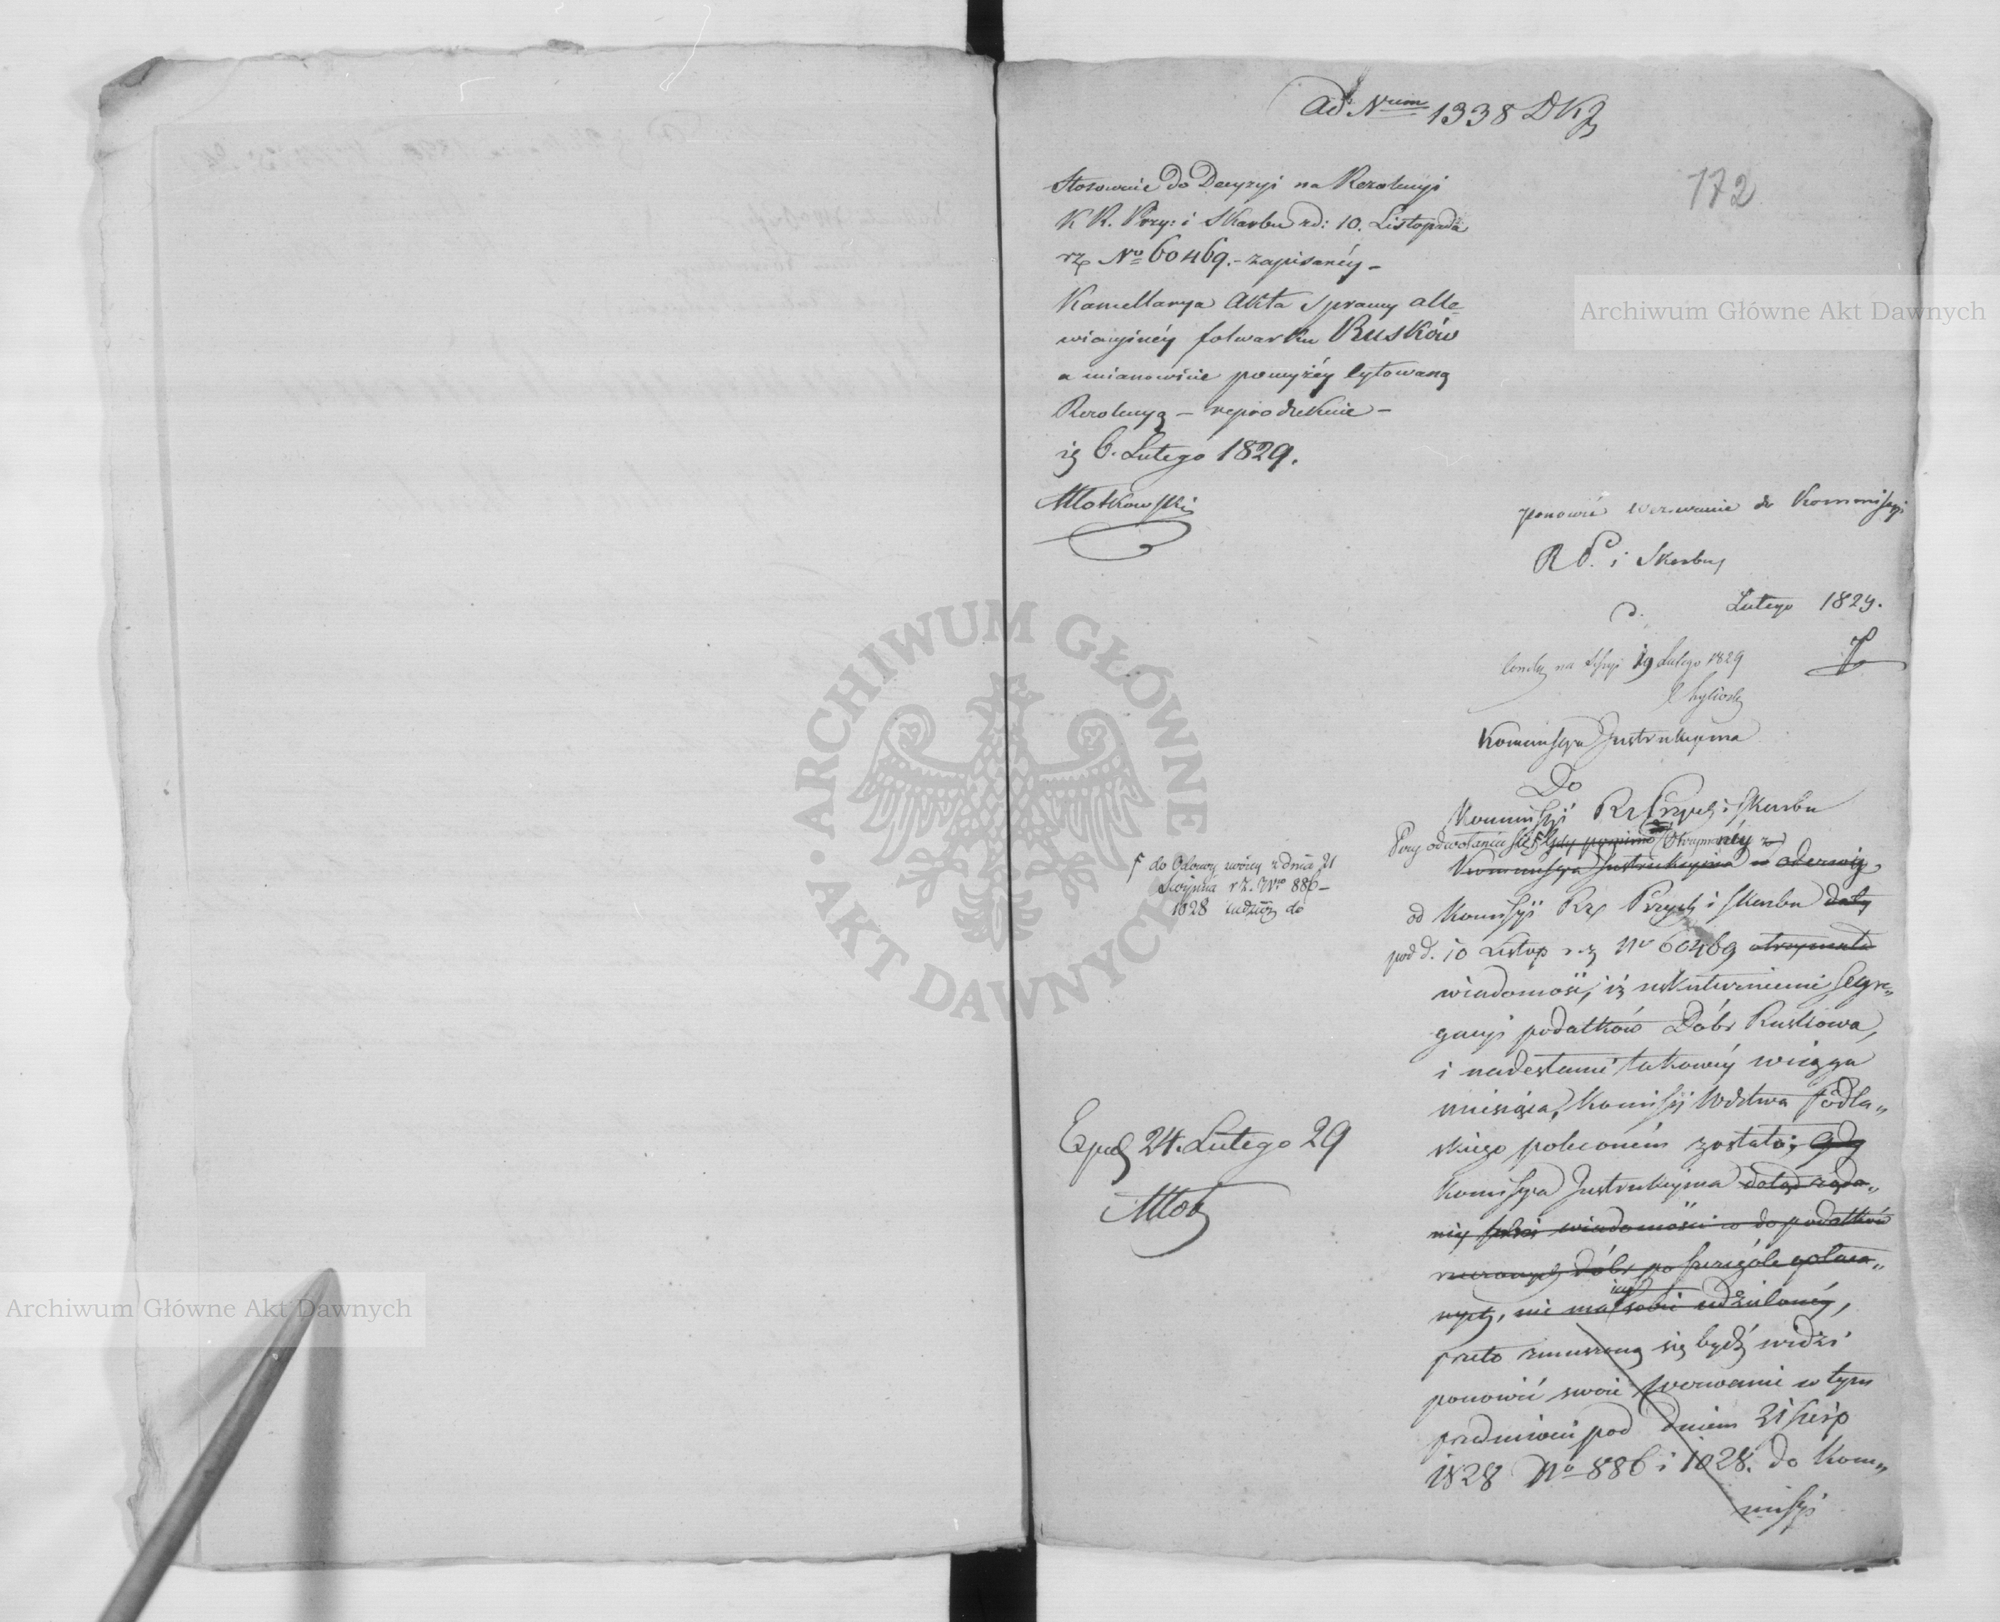 Ad Nrum 1338 DKJ
172
Stosownie do Decyzyi na Rezolucyi
K R. Przy: i Skarbu zd: 10. Listopada
rz No 60469. – zapisanéy –
Kancellarya Akta sprawy alle-
wiacyinéy folwarku Rusków
a mianowicie powyżéy cytowaną
Rezolucyą – reprodukuie –
6. Lutego 1829.
Młotkowski
ponowić wezwanie do Kommissyi
R P. i Skarbu
d. Lutego 1829.
na Sessyi 19 Lutego 1829
Kommissya Instrukcyina
Do
Kommissyi Rz Przych i Skarbu
Przy odwołaniu się gdy pomimo otrzymanéy
Kommissya Instrukcyina w odezwie
od Kommissyi Rz Przych i Skarbu daty
pod d. 10 Listop r. z No 60469 otrzymała
wiadomość, iż uskutecznienie segre-
gacyi podatków Dóbr Ruskowa,
i nadesłanie takowéy w ciągu
miesiąca, Komissyi Wdztwa Podla-
skiego poleconém zostało; gdy
Komissya Instrukcyina dotąd żąda-
néy sobie wiadomości co do podatków
rzeczonych dóbr po szczególe opłaca-
nych, nie ma sobie udzielonéy,
przeto zmuszoną się bydź widzi
ponowić swoie wezwanie w tym
przedmiocie pod dniem 21 Sierp
1828 No 886 i 1028. do Kom-
missyi
f do Odezwy swéy z dnia 21
Sierpnia r z. Nro 886 –
1028 tudzież do
Exped 24. Lutego 29
Młot
Archiwum Główne Akt Dawnych
Archiwum Główne Akt Dawnych
ARCHIWUM GŁÓWNE AKT DAWNYCH